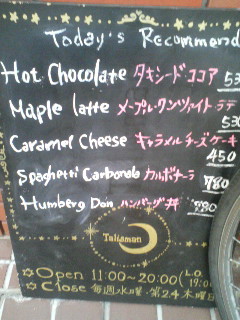 Today's Recommend
Hot Chocolate タキシードココア 53
Maple latte メープル・クンツァイトラテ
530
Caramel Cheese キャラメルチーズケーキ
450
Spaghetti Carbonala カルボナーラ 780
Humberg Don ハンバーグ丼 780
Talisman
Open 11:00~20:00 (L.O. 19:00
Close 毎週水曜・第2.4木曜日